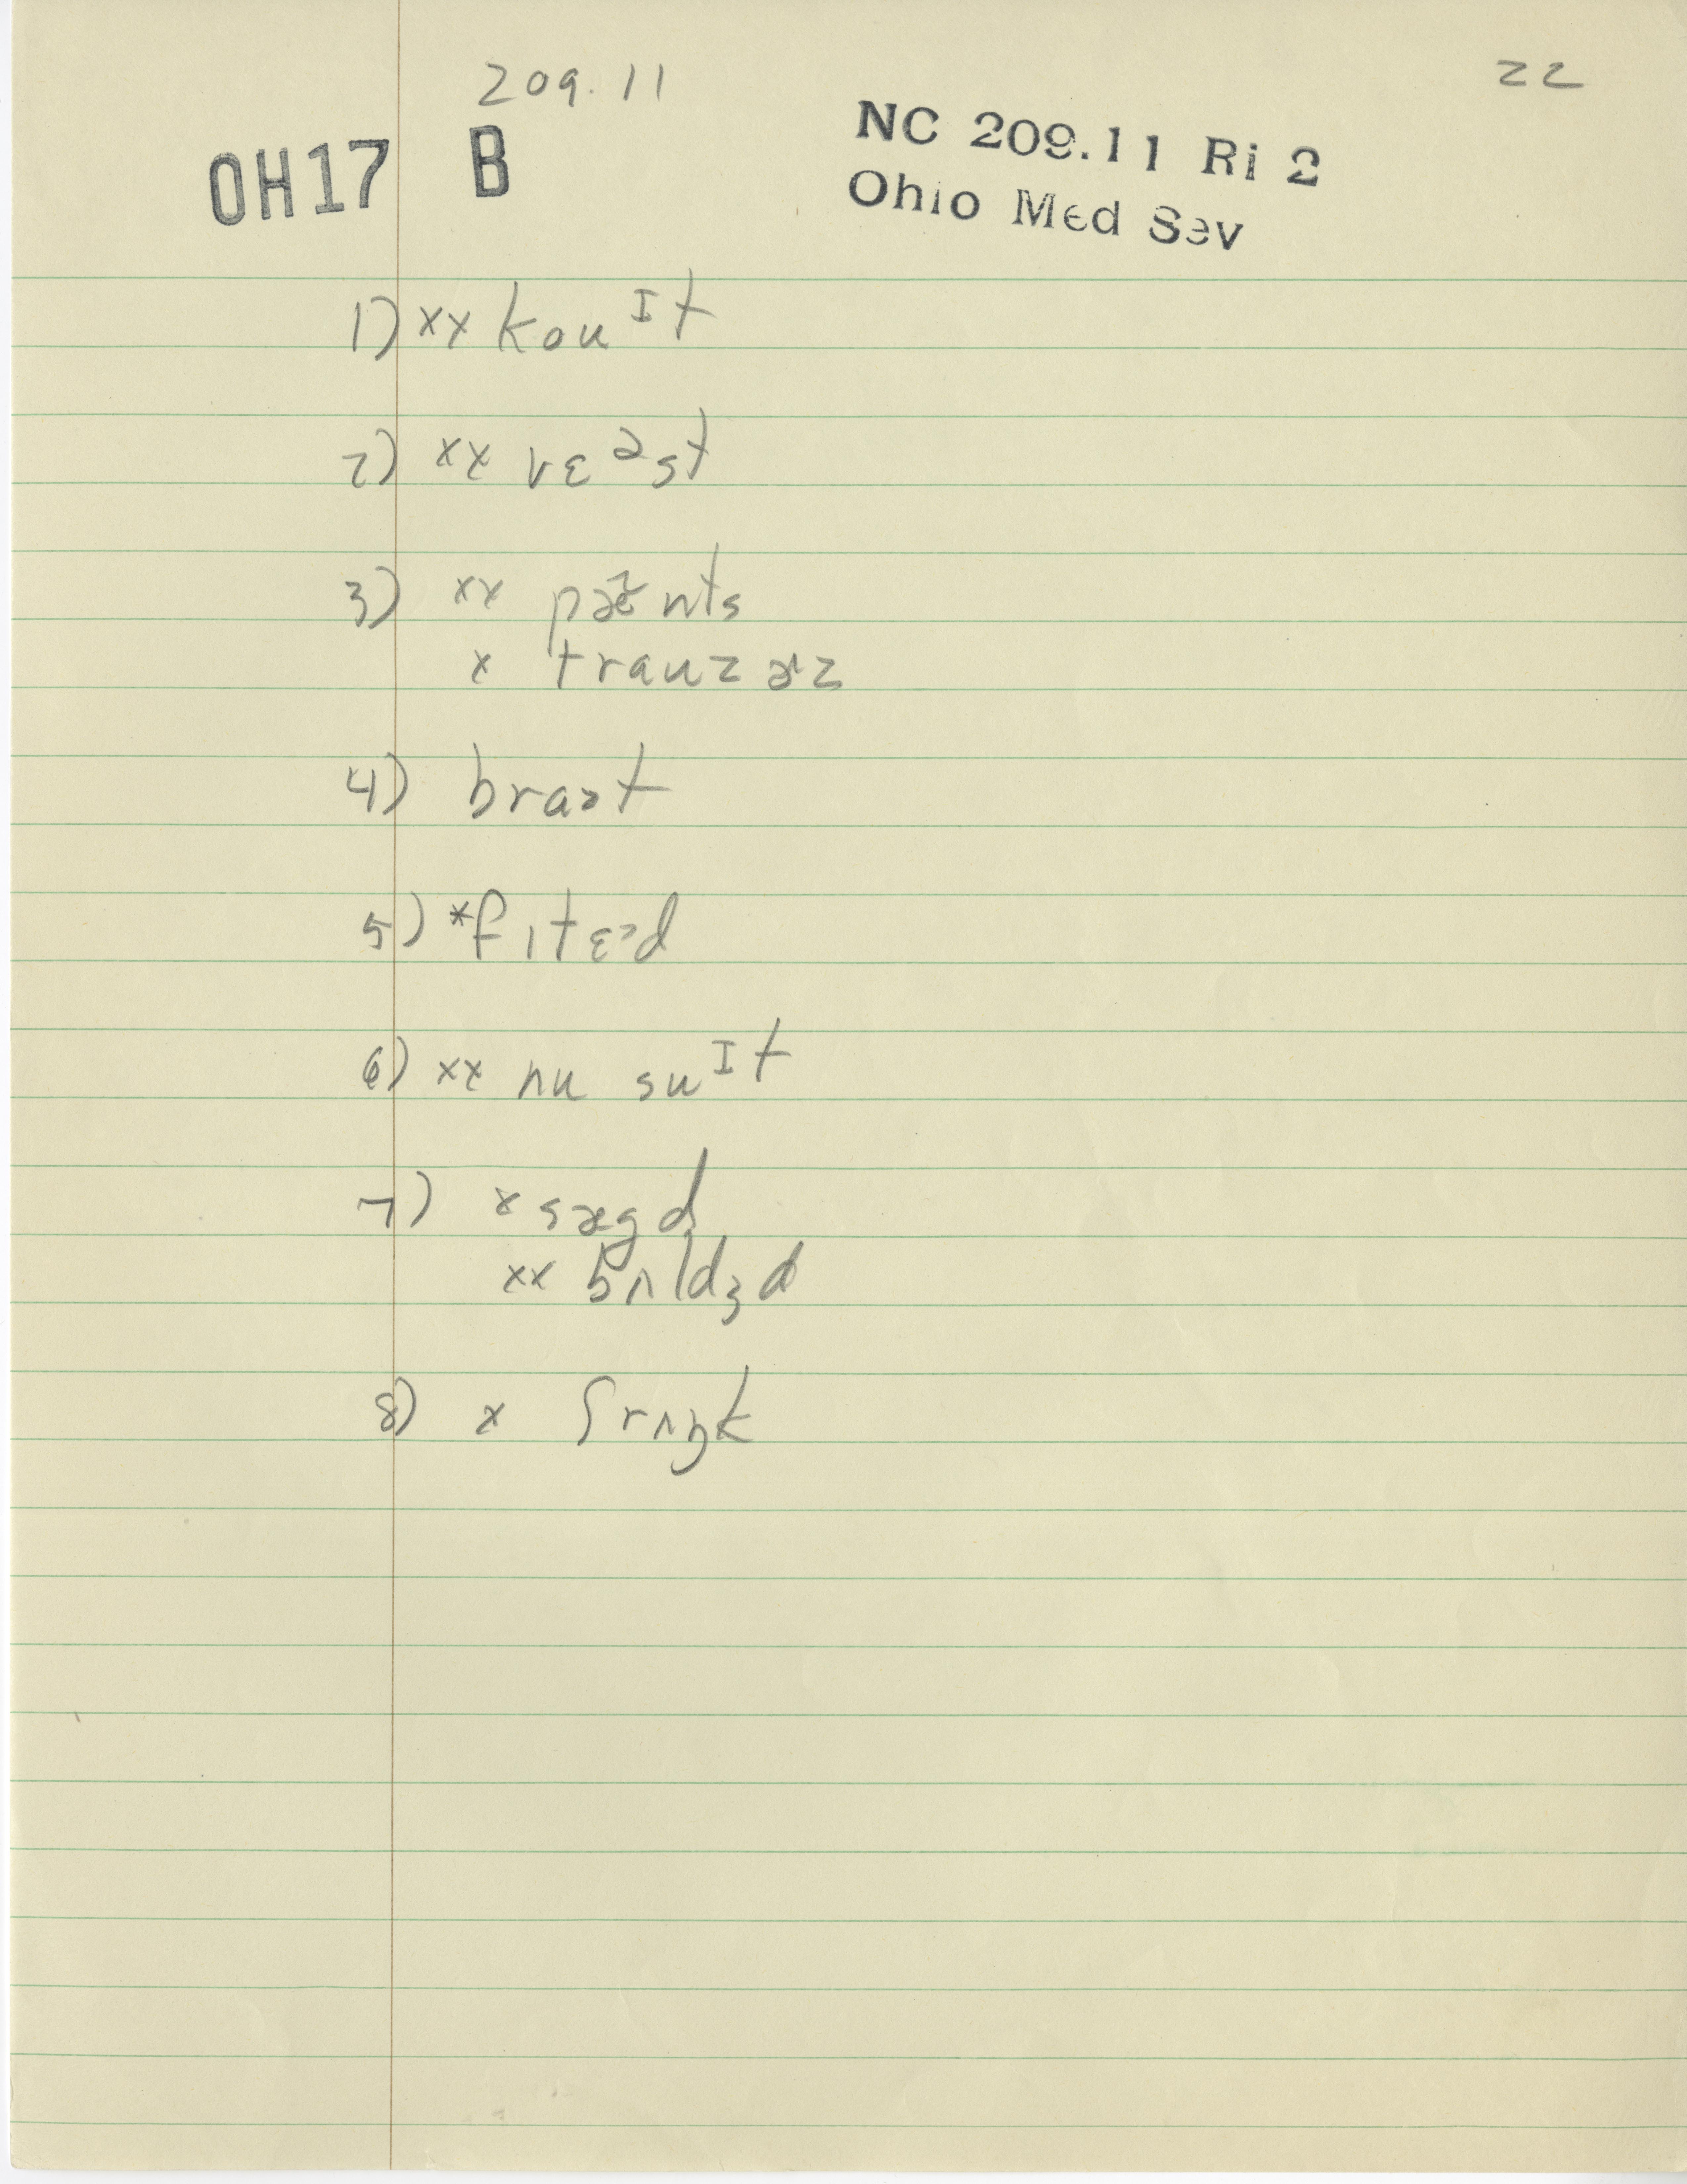 209.11
22
OH17 B
NC 209.11 Ri 2
Ohio Med Sev
1) xx kouᴵt
2) xx vɛᵊst
3) xx pæᵋnts
x trauzɚz
4) braət
5) *fɪtɛᵊd
6) xx nu suᴵt
7) x sægd
xx bʌldʒd
8) x ʃrʌŋk